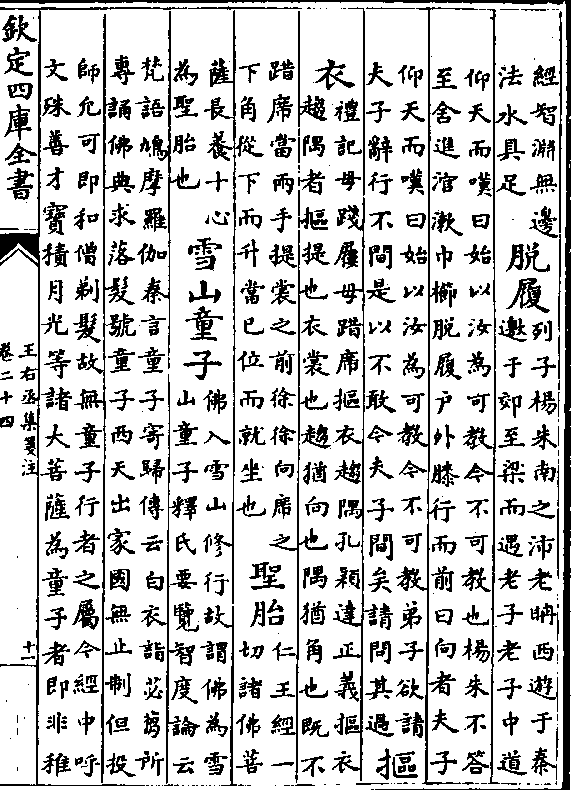 經智淵無邊
法水具足
脱履
列子楊朱南之沛老聃西遊于秦
邀于郊至梁而遇老子老子中道
仰天而嘆曰始以汝為可教今不可教也楊朱不答
至舍進涫漱巾櫛脱履户外膝行而前曰向者夫子
仰天而嘆曰始以汝為可教今不可教弟子欲請
夫子辭行不間是以不敢今夫子間矣請問其過
摳
衣
禮記毋踐屨毋踖席摳衣趨隅孔穎達正義摳衣
趨隅者摳提也衣裳也趨猶向也隅猶角也既不
踖席當兩手提裳之前徐徐向席之
下角從下而升當已位而就坐也
聖胎
仁王經一
切諸佛菩
薩長養十心
為聖胎也
雪山童子
佛入雪山修行故謂佛為雪
山童子釋氏要覽智度論云
梵語鳩摩羅伽秦言童子寄歸傳云白衣詣苾蒭所
專誦佛典求落髮號童子西天出家國無止制但投
師允可即和僧剃髮故無童子行者之屬今經中呼
文殊善才寶積月光等諸大菩薩為童子者即非稚
欽定四庫全書
王右丞集箋注
卷二十四
十一